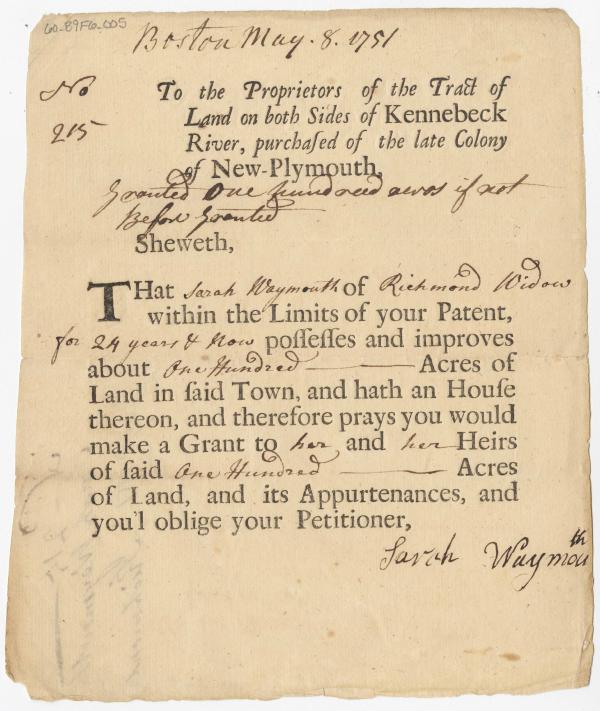 60-89F6-005
Boston May. 8. 1751
No
215
To the Proprietors of the Tract of
Land on both Sides of Kennebeck
River, purchaſed of the late Colony
of New-Plymouth,
Granted One hundred acres if not
Before Granted
Sheweth,
THat Sarah Waymouth of Richmond Widow
within the Limits of your Patent,
for 24 years & Now poſſeſſes and improves
about One Hundred Acres of
Land in ſaid Town, and hath an Houſe
thereon, and therefore prays you would
make a Grant to her and her Heirs
of ſaid One Hundred Acres
of Land, and its Appurtenances, and
you'l oblige your Petitioner,
Sarah Waymouth